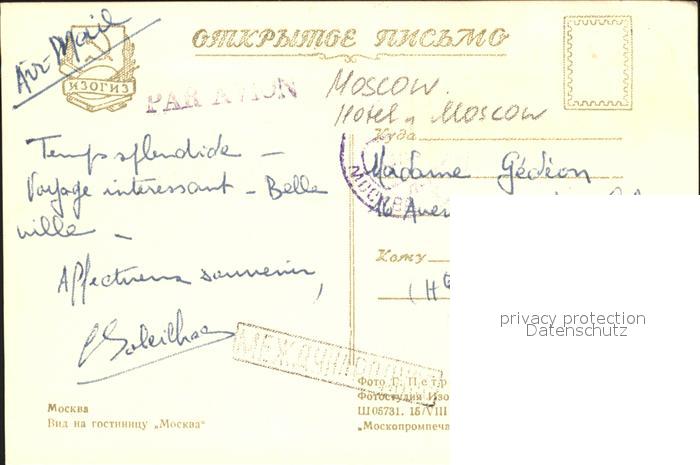 Air-Mail
ИЗОГИЗ
ОТКРЫТОЕ ПИСЬМО
PAR AVION
Moscow.
Hotel Moscow
Куда
Temps splendide –
Voyage interessant – Belle
ville –
Affectueux souvenir,
Madame Gédéon
16 Aven
МОСКВА
Кому
(Hte
privacy protection
Datenschutz
МЕЖДУНАРОДНОЕ
Москва
Вид на гостиницу „Москва“
Фото Г. Петр
Фотостудия Изо
Ш05731. 15/VIII
„Москопромпеча